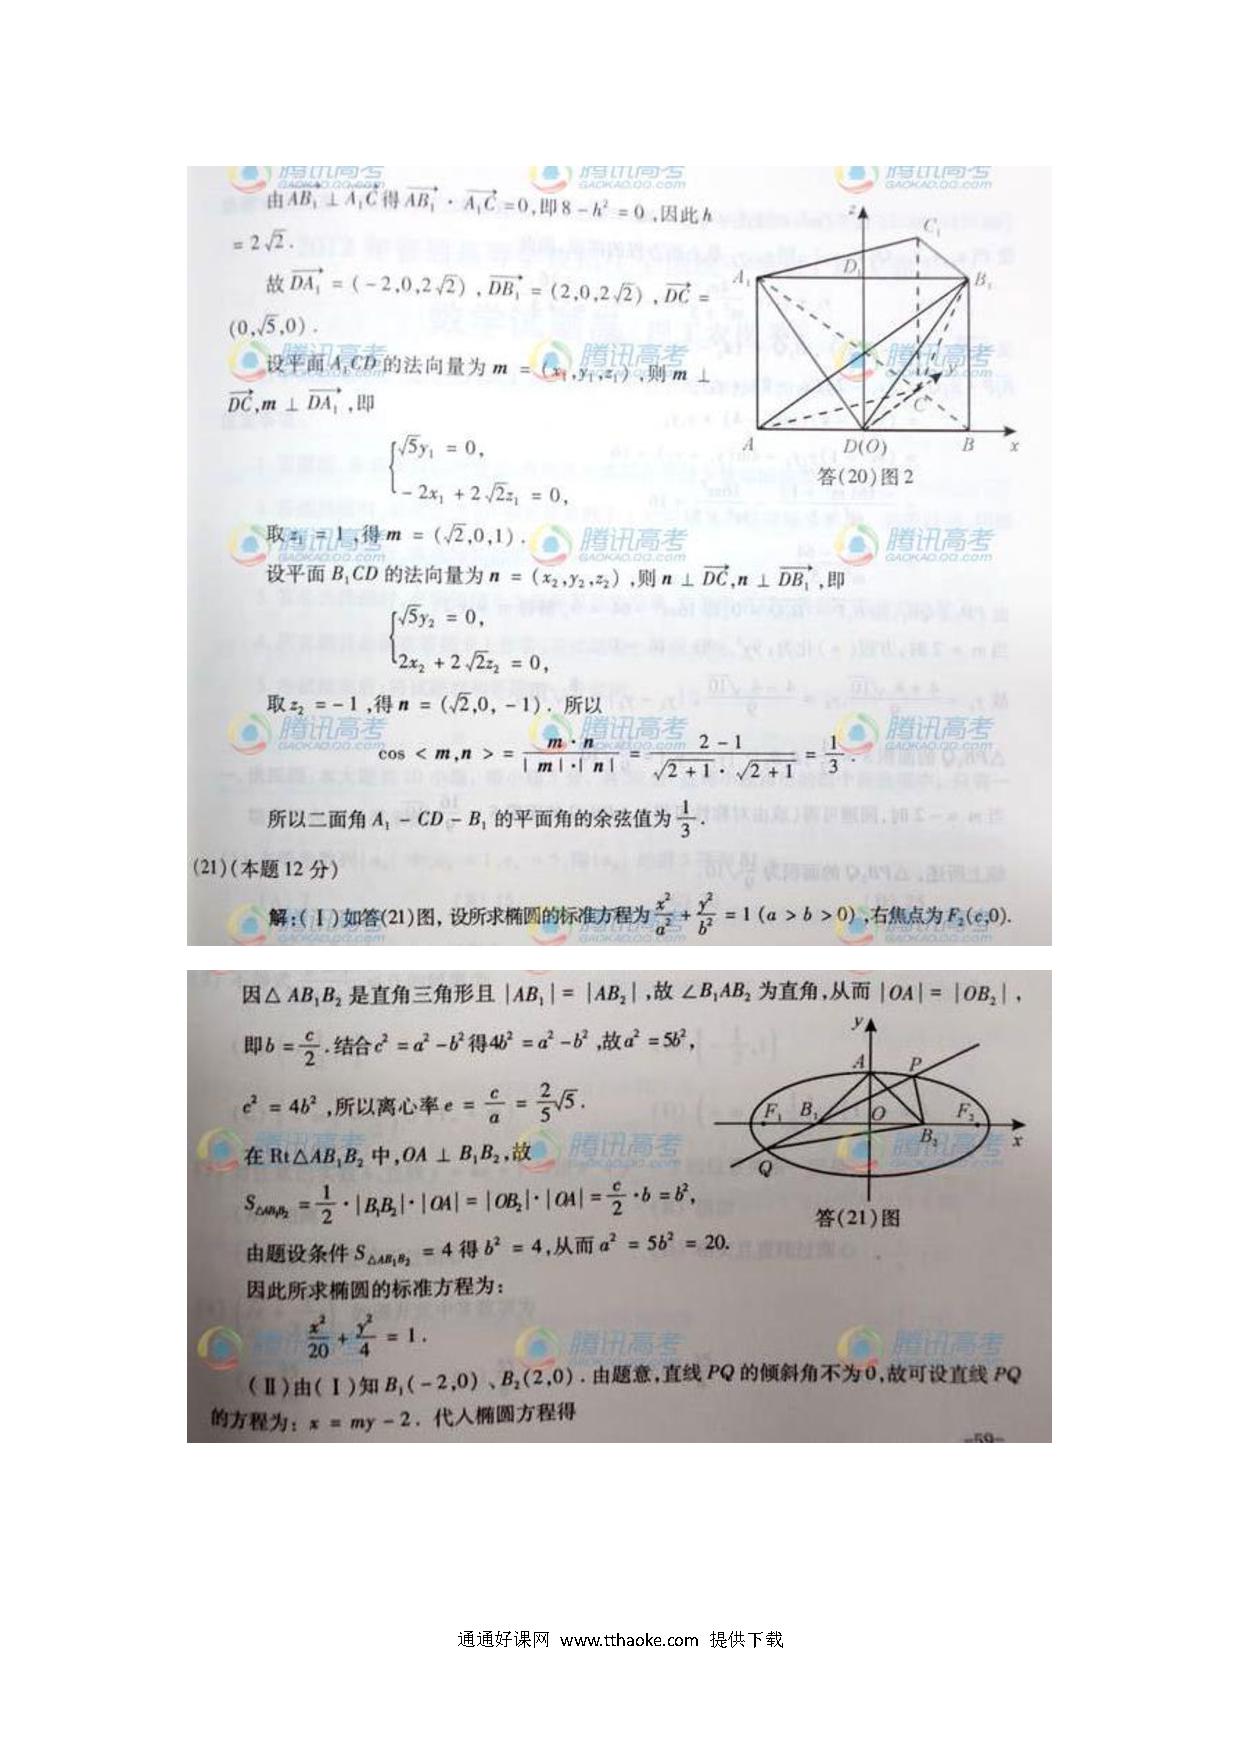 由$\overrightarrow{AB_1}$ ⊥ $\overrightarrow{A_1C}$得$\overrightarrow{AB_1}$ · $\overrightarrow{A_1C}$=0,即8 - h² = 0,因此h
= 2√2.
故$\overrightarrow{DA_1}$ = (-2,0,2√2),$\overrightarrow{DB_1}$ = (2,0,2√2),$\overrightarrow{DC}$ =
(0,√5,0).
设平面A₁CD的法向量为m = (x₁,y₁,z₁),则m ⊥
$\overrightarrow{DC}$,m ⊥ $\overrightarrow{DA_1}$,即
√5y₁ = 0,
-2x₁ + 2√2z₁ = 0,
z
C₁
D₁
A₁
B₁
y
C
A
D(O)
B
x
答(20)图2
取z₁ = 1,得m = (√2,0,1).
设平面B₁CD的法向量为n = (x₂,y₂,z₂),则n ⊥ $\overrightarrow{DC}$,n ⊥ $\overrightarrow{DB_1}$,即
√5y₂ = 0,
2x₂ + 2√2z₂ = 0,
取z₂ = -1,得n = (√2,0,-1). 所以
cos < m,n > = $\frac{m·n}{|m|·|n|}$ = $\frac{2-1}{\sqrt{2+1}·\sqrt{2+1}}$ = $\frac{1}{3}$.
所以二面角A₁ - CD - B₁的平面角的余弦值为$\frac{1}{3}$.
(21)(本题12分)
解:(Ⅰ)如答(21)图,设所求椭圆的标准方程为$\frac{x^2}{a^2}$ + $\frac{y^2}{b^2}$ = 1 (a > b > 0),右焦点为F₂(c,0).
因△AB₁B₂是直角三角形且|AB₁| = |AB₂|,故∠B₁AB₂为直角,从而|OA| = |OB₂|,
即b = $\frac{c}{2}$.结合c² = a² - b²得4b² = a² - b²,故a² = 5b²,
c² = 4b²,所以离心率e = $\frac{c}{a}$ = $\frac{2}{5}$√5.
在Rt△AB₁B₂中,OA ⊥ B₁B₂,故
$S_{△AB_1B_2}$ = $\frac{1}{2}$·|B₁B₂|·|OA| = |OB₂|·|OA| = $\frac{c}{2}$·b = b²,
由题设条件$S_{△AB_1B_2}$ = 4得b² = 4,从而a² = 5b² = 20.
因此所求椭圆的标准方程为:
$\frac{x^2}{20}$ + $\frac{y^2}{4}$ = 1.
y
A
P
F₁
B₁
O
F₂
B₂
x
Q
答(21)图
(Ⅱ)由(Ⅰ)知B₁(-2,0)、B₂(2,0).由题意,直线PQ的倾斜角不为0,故可设直线PQ
的方程为:x = my - 2. 代入椭圆方程得
-59-
腾讯高考
GAOKAO.QQ.COM
通通好课网 www.tthaoke.com 提供下载